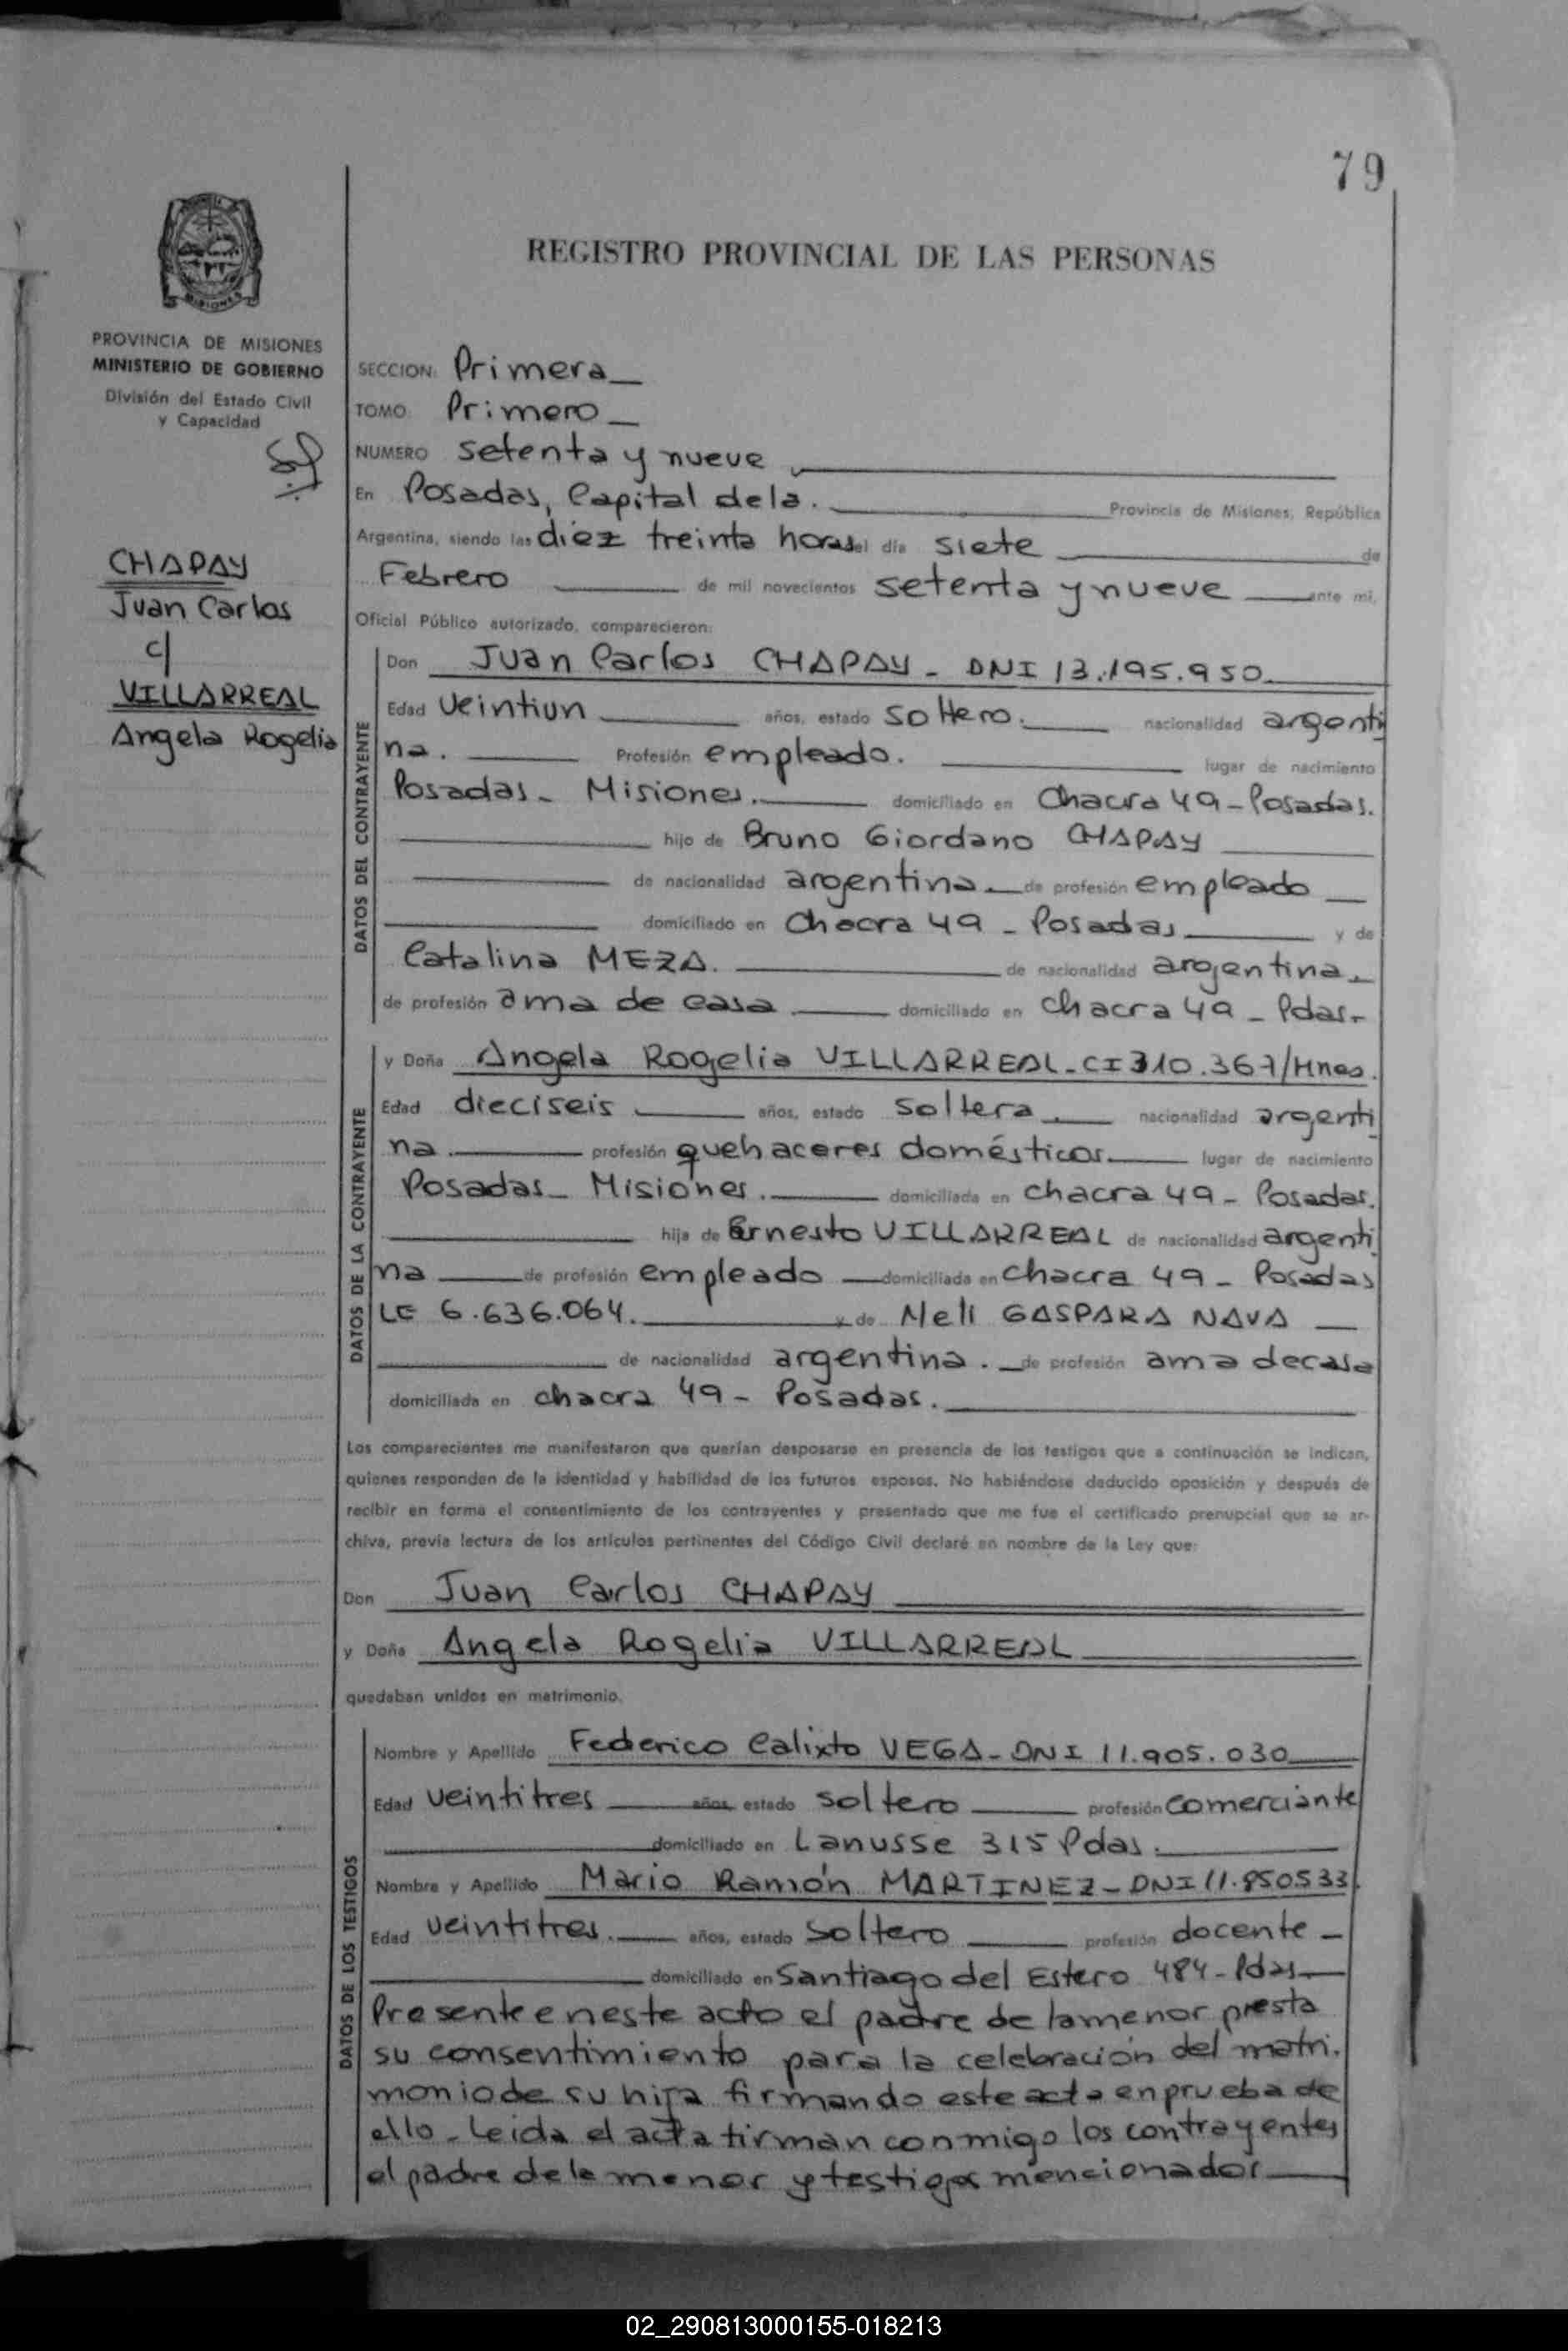 79
REGISTRO PROVINCIAL DE LAS PERSONAS
MISIONES
PROVINCIA DE MISIONES
MINISTERIO DE GOBIERNO
División del Estado Civil
y Capacidad
CHAPAY
Juan Carlos
c/
VILLARREAL
Angela Rogelia
SECCION: Primera
TOMO Primero
NUMERO setenta y nueve
En Posadas, Capital dela. Provincia de Misiones, República
Argentina, siendo las diez treinta horas del día siete de
Febrero de mil novecientos setenta y nueve ante mi,
Oficial Público autorizado, comparecieron:
DATOS DEL CONTRAYENTE
Don Juan Carlos CHAPAY - DNI 13.195.950
Edad veintiun años, estado soltero. nacionalidad argenti
na. Profesión empleado. lugar de nacimiento
Posadas - Misiones. domiciliado en Chacra 49 - Posadas.
hijo de Bruno Giordano CHAPAY
de nacionalidad argentina de profesión empleado
domiciliado en Chacra 49 - Posadas y de
Catalina MEZA. de nacionalidad argentina
de profesión ama de casa domiciliado en Chacra 49 - Pdas-
DATOS DE LA CONTRAYENTE
y Doña Angela Rogelia VILLARREAL - CI 310.367/Mnes.
Edad dieciseis años, estado soltera nacionalidad argenti
na. profesión quehaceres domésticos lugar de nacimiento
Posadas - Misiones. domiciliada en chacra 49 - Posadas.
hija de Ernesto VILLARREAL de nacionalidad argenti
na de profesión empleado domiciliada en Chacra 49 - Posadas
LE 6.636.064. y de Meli GASPARA NAVA
de nacionalidad argentina. de profesión ama decasa
domiciliada en chacra 49 - Posadas.
Los comparecientes me manifestaron que querían desposarse en presencia de los testigos que a continuación se indican,
quienes responden de la identidad y habilidad de los futuros esposos. No habiéndose deducido oposición y después de
recibir en forma el consentimiento de los contrayentes y presentado que me fue el certificado prenupcial que se ar-
chiva, previa lectura de los artículos pertinentes del Código Civil declaré en nombre de la Ley que:
Don Juan Carlos CHAPAY
y Doña Angela Rogelia VILLARREAL
quedaban unidos en matrimonio.
DATOS DE LOS TESTIGOS
Nombre y Apellido Federico Calixto VEGA - DNI 11.905.030
Edad veintitres años, estado soltero profesión comerciante
domiciliado en Lanusse 315 Pdas.
Nombre y Apellido Mario Ramón MARTINEZ - DNI 11.850533.
Edad veintitres. años, estado soltero profesión docente -
domiciliado en Santiago del Estero 484 - Pdas
Presente eneste acto el padre de lamenor presta
su consentimiento para la celebración del matri.
moniode su hija firmando este acta enprueba de
ello - Leida el acta firman conmigo los contrayentes
el padre dela menor y testigos mencionados
02_290813000155-018213